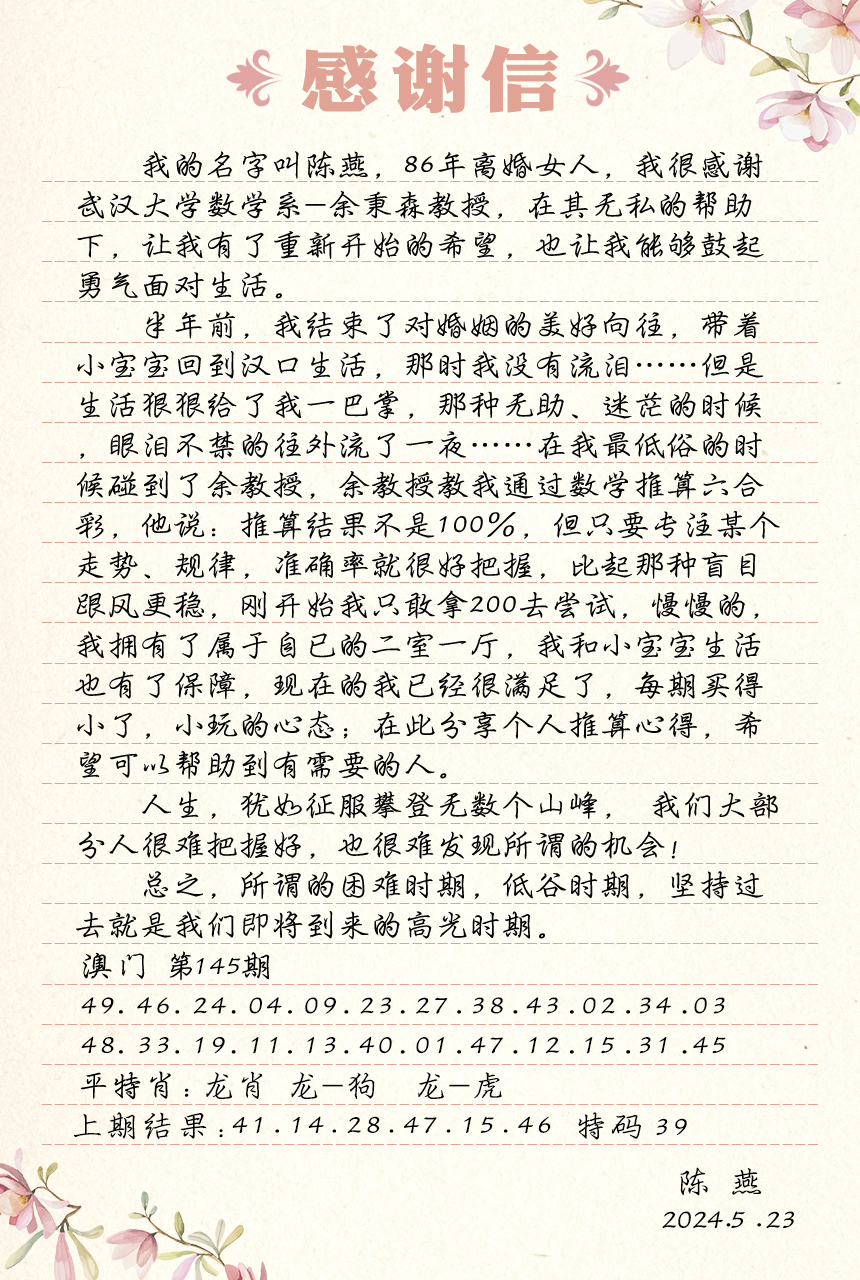 感谢信
我的名字叫陈燕，86年离婚女人，我很感谢
武汉大学数学系—余秉森教授，在其无私的帮助
下，让我有了重新开始的希望，也让我能够鼓起
勇气面对生活。
半年前，我结束了对婚姻的美好向往，带着
小宝宝回到汉口生活，那时我没有流泪……但是
生活狠狠给了我一巴掌，那种无助、迷茫的时候
，眼泪不禁的往外流了一夜……在我最低俗的时
候碰到了余教授，余教授教我通过数学推算六合
彩，他说：推算结果不是100%，但只要专注某个
走势、规律，准确率就很好把握，比起那种盲目
跟风更稳，刚开始我只敢拿200去尝试，慢慢的，
我拥有了属于自已的二室一厅，我和小宝宝生活
也有了保障，现在的我已经很满足了，每期买得
小了，小玩的心态；在此分享个人推算心得，希
望可以帮助到有需要的人。
人生，犹如征服攀登无数个山峰， 我们大部
分人很难把握好，也很难发现所谓的机会！
总之，所谓的困难时期，低谷时期，坚持过
去就是我们即将到来的高光时期。
澳门 第145期
49.46.24.04.09.23.27.38.43.02.34.03
48.33.19.11.13.40.01.47.12.15.31.45
平特肖：龙肖 龙—狗 龙—虎
上期结果：41.14.28.47.15.46 特码 39
陈 燕
2024.5.23